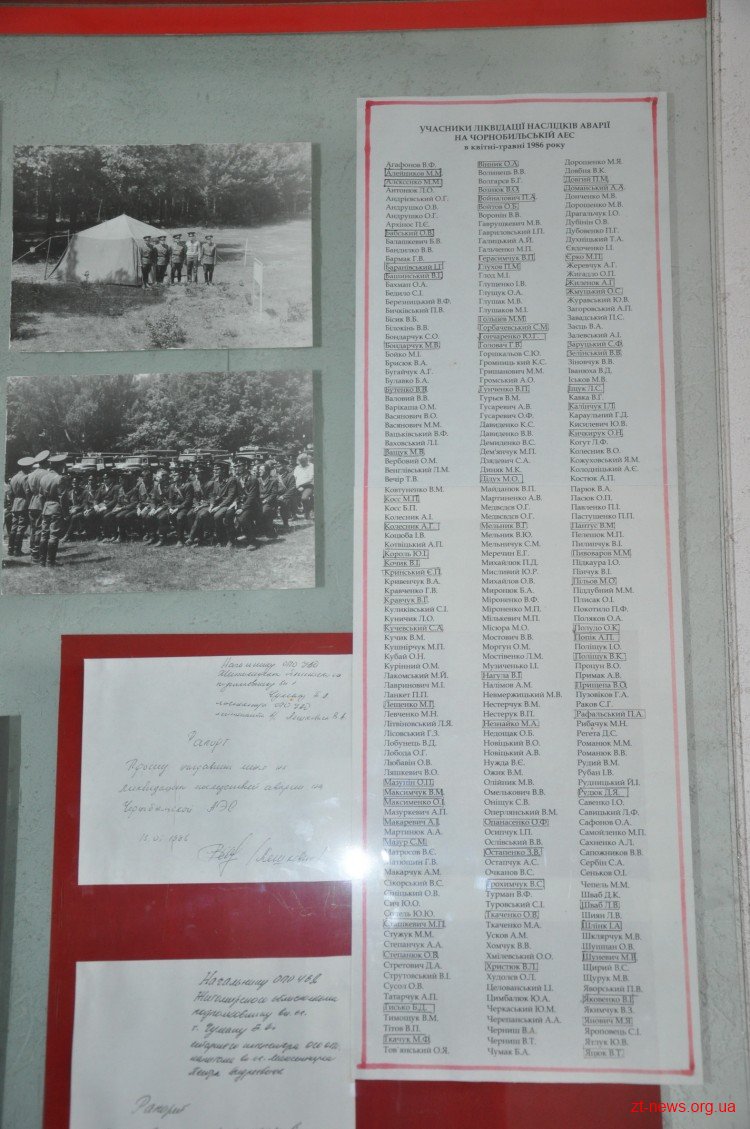 УЧАСНИКИ ЛІКВІДАЦІЇ НАСЛІДКІВ АВАРІЇ
НА ЧОРНОБИЛЬСЬКІЙ АЕС
в квітні-травні 1986 року
Агафонов В.Ф.
Алейников М.М.
Алексєнко М.М.
Антонюк Л.О.
Андрієвський О.Г.
Андрушко О.В.
Андрушко О.Г.
Архіпюс П.Є.
Бабський О.В.
Балашкевич Б.В.
Бандилко В.В.
Бармак Г.В.
Баранівський І.І.
Бахман О.А.
Бедило С.І.
Березницький В.Ф.
Бичківський П.В.
Бісик В.Б.
Білокінь В.В.
Бондарчук С.О.
Бондарчук М.В.
Бойко М.І.
Брисюк В.А.
Бугайчук А.Г.
Булавко Б.А.
Бутенко В.В.
Валовий В.В.
Варікаша О.М.
Васянович В.О.
Васянович М.М.
Вацьківський В.Ф.
Ваховський Л.І.
Ващук М.В.
Вербовий О.М.
Венглівський Л.М.
Вечір Т.В.
Ковтуненко В.М.
Косс М.П.
Косс Б.П.
Колесник А.І.
Колесник А.Г.
Коцюба І.В.
Котвіцький А.П.
Король Ю.І.
Кочик В.І.
Крипський Є.П.
Кривенчук В.А.
Кравченко Г.В.
Кравчук В.Г.
Куликівський С.І.
Куничик Л.О.
Кучевський С.А.
Кучик В.М.
Кушнірчук М.П.
Кубай О.Н.
Курінний О.М.
Лакомський М.Й.
Лавринович М.І.
Ланкет П.П.
Лещенко М.Г.
Левченко М.Н.
Літвіновський Л.Я.
Лісовський Г.З.
Лобунець В.Д.
Лобода О.Г.
Любавін О.В.
Ляшкевич В.О.
Мазунін О.П.
Максимчук В.М.
Максименко О.І.
Мазуркевич А.П.
Макаревич А.І.
Мартинюк А.А.
Мазур С.М.
Матросов В.Є.
Матюшин Г.В.
Макарчук А.М.
Сікорський В.Є.
Сініцький О.В.
Сич Ю.О.
Сташкевич М.П.
Стужук М.М.
Степанчук А.А.
Степанюк О.В.
Стретович Д.А.
Струтовський В.І.
Сусол О.В.
Татарчук А.П.
Тисько В.Д.
Тимощук В.М.
Тітов В.П.
Ткачук М.Ф.
Товянський О.Я.
Вінник О.А.
Волинець В.В.
Волгарєв Б.Г.
Вознюк В.О.
Войналович П.А.
Войтов О.Б.
Воронін В.В.
Гаврушкевич М.В.
Гавриловський І.П.
Галицький А.Й.
Гальченко М.П.
Герасимчук В.П.
Глухов П.М.
Глод М.І.
Глущенко І.В.
Глущук О.А.
Глушак М.В.
Глушаков М.І.
Гольцев М.М.
Горбачевський С.М.
Гончаренко Ю.Г.
Головач Г.В.
Горшкальов С.Ю.
Громніцький К.С.
Гришанович М.М.
Громський А.О.
Гунченко В.П.
Гурьєв В.М.
Гусаревич А.В.
Гусаревич О.Ф.
Давиденко К.С.
Давиденко В.В.
Демиденко В.Є.
Дем'янчук М.П.
Дзядевич С.А.
Диняк М.К.
Дідух М.О.
Майданюк В.П.
Мартиненко А.В.
Медведєв О.Г.
Медведєв О.Г.
Мельник В.Г.
Мельник В.Ю.
Мельничук С.М.
Меречин Е.Г.
Михайлюк П.Д.
Мисливий Ю.Р.
Михайлов О.В.
Миронюк Б.А.
Мироненко В.Ф.
Міроненко М.П.
Мількевич М.П.
Місюра М.О.
Мостович В.В.
Моргун О.М.
Мостівенко Л.М.
Музиченко І.І.
Нагула В.Г.
Налімов А.М.
Невмержицький М.В.
Нестерчук В.М.
Нестерук В.П.
Незнайко М.А.
Недошук О.Б.
Новіцький В.О.
Новіцький А.В.
Нужда В.Є.
Ожик В.М.
Олійник М.В.
Омелькович В.В.
Оніщук С.В.
Оперлянський В.М.
Опанасенко О.Ф.
Осипчук І.П.
Ослівський В.В.
Остапенко З.В.
Остапчук А.С.
Очканов В.С.
Трохимчук В.С.
Турман В.Ф.
Туровський С.І.
Ткаченко О.В.
Ткаченко М.А.
Усков А.М.
Хомчук В.В.
Хмілевський О.О.
Христюк В.Л.
Худолєв О.Л.
Целованський І.І.
Цимбалюк Ю.А.
Черкаський Ю.М.
Черепанський А.А.
Черниш В.А.
Черниш В.Т.
Чумак Б.А.
Дорошенко М.Я.
Довбня В.К.
Довгий П.М.
Доманський А.А.
Донченко М.В.
Дорошенко М.В.
Драгальчук І.О.
Дубінін О.В.
Дубовенко П.Г.
Духніцький Т.А.
Євдоченко І.І.
Єрко М.П.
Жеревчук А.Г.
Жигадло О.П.
Жиленок А.Г.
Жмуцький О.С.
Журавський Ю.В.
Загоровський А.П.
Завадський П.С.
Заєць В.А.
Залевський А.І.
Заруцький С.Ф.
Зелінський В.В.
Зіновчук В.В.
Іванюха В.Д.
Іськов М.В.
Іщук Л.С.
Кавка В.Г.
Калінчук І.Т.
Караульний Г.Д.
Кисилевич Ю.В.
Кичкирук О.Н.
Когут Л.Ф.
Колесник В.О.
Кожуховський Я.М.
Колодніцький А.Є.
Костюк А.П.
Парюк В.А.
Пасюк О.П.
Павленко П.І.
Пастушенко П.П.
Пантус В.М.
Пелешок М.П.
Пилипчук В.І.
Пивоваров М.М.
Підкаура І.О.
Пінчук В.І.
Пільов М.О.
Піддубний М.М.
Плисак О.І.
Покотило П.Ф.
Поляков О.А.
Полуло О.К.
Попік А.П.
Поліщук І.О.
Поліщук В.К.
Процун В.О.
Примак А.В.
Прищепа В.О.
Пузовіков Г.А.
Раков С.Г.
Рафальський П.А.
Рибачук М.Н.
Регета Д.С.
Романюк М.М.
Романюк В.В.
Рудий В.М.
Рубан І.В.
Рудницький Й.І.
Рудюк Д.Я.
Савенко І.О.
Савицький Л.Ф.
Сафонов О.А.
Самойленко М.П.
Сахненко А.Л.
Сапожников В.В.
Сербін С.А.
Сеньков О.І.
Чепель М.М.
Шваб Д.К.
Шваб Л.В.
Шиян Л.В.
Шлінк І.А.
Шклярчук М.В.
Шушпан О.В.
Шуневич М.В.
Щирий В.С.
Щурук М.В.
Яворський П.В.
Яковенко В.Г.
Якимчук В.З.
Янович М.Я.
Яроповець С.І.
Ятлук Ю.В.
Яцюк В.Т.
Рапорт
Прошу направить меня на
ликвидацию последствий аварии на
Чернобыльской АЭС
Начальнику ОПО УВД
Житомирского облисполкома
подполковнику вн. сс.
Рапорт
zt-news.org.ua